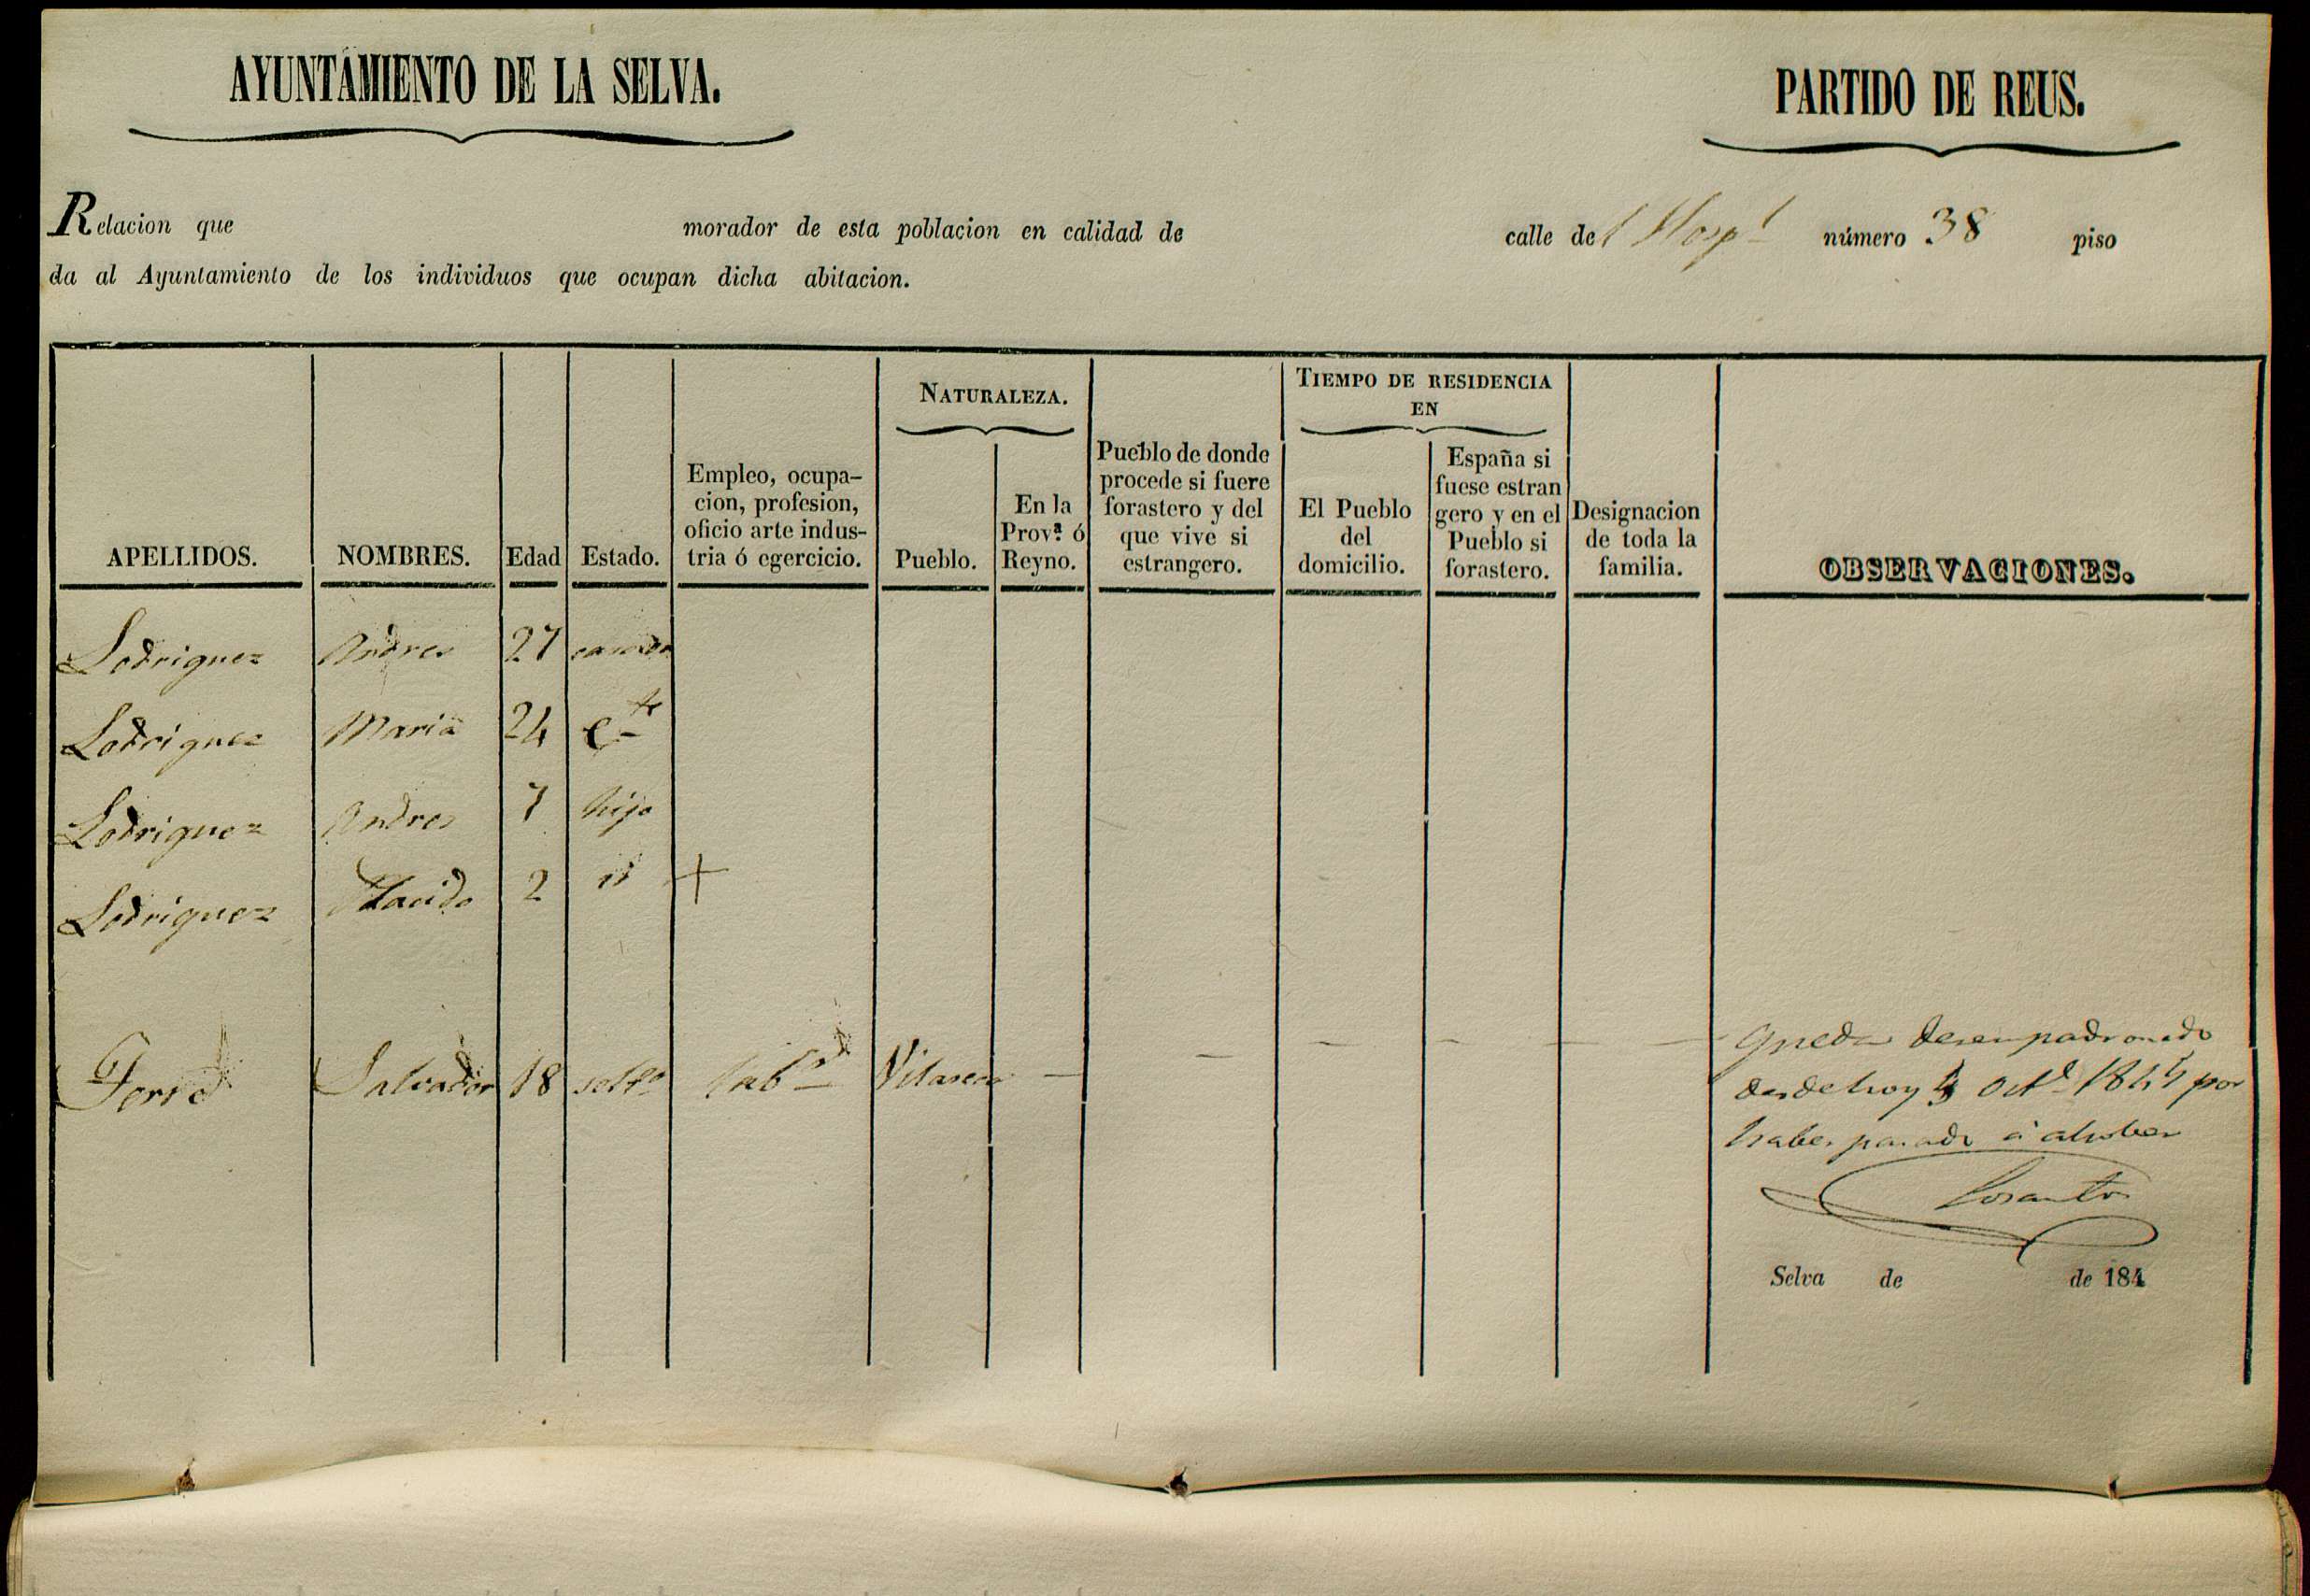 AYUNTAMIENTO DE LA SELVA.
PARTIDO DE REUS.
Relacion que morador de esta poblacion en calidad de calle del Hospl número 38 piso
da al Ayuntamiento de los individuos que ocupan dicha abitacion.
APELLIDOS.
NOMBRES.
Edad
Estado.
Empleo, ocupa-
cion, profesion,
oficio arte indus-
tria ó egercicio.
NATURALEZA.
Pueblo.
En la
Provª ó
Reyno.
Pueblo de donde
procede si fuere
forastero y del
que vive si
estrangero.
TIEMPO DE RESIDENCIA
EN
El Pueblo
del
domicilio.
España si
fuese estran
gero y en el
Pueblo si
forastero.
Designacion
de toda la
familia.
OBSERVACIONES.
Lodriguez Andres 27 casado
Lodriguez Maria 24
Lodriguez Andres 7 hijo
Lodriguez Placido 2 id +
Ferré Salvador 18 solto labr Vilaseca — — — — — —
Queda desempadronado
desde hoy Octe 1844 por
haber pasado á
Selva de de 184